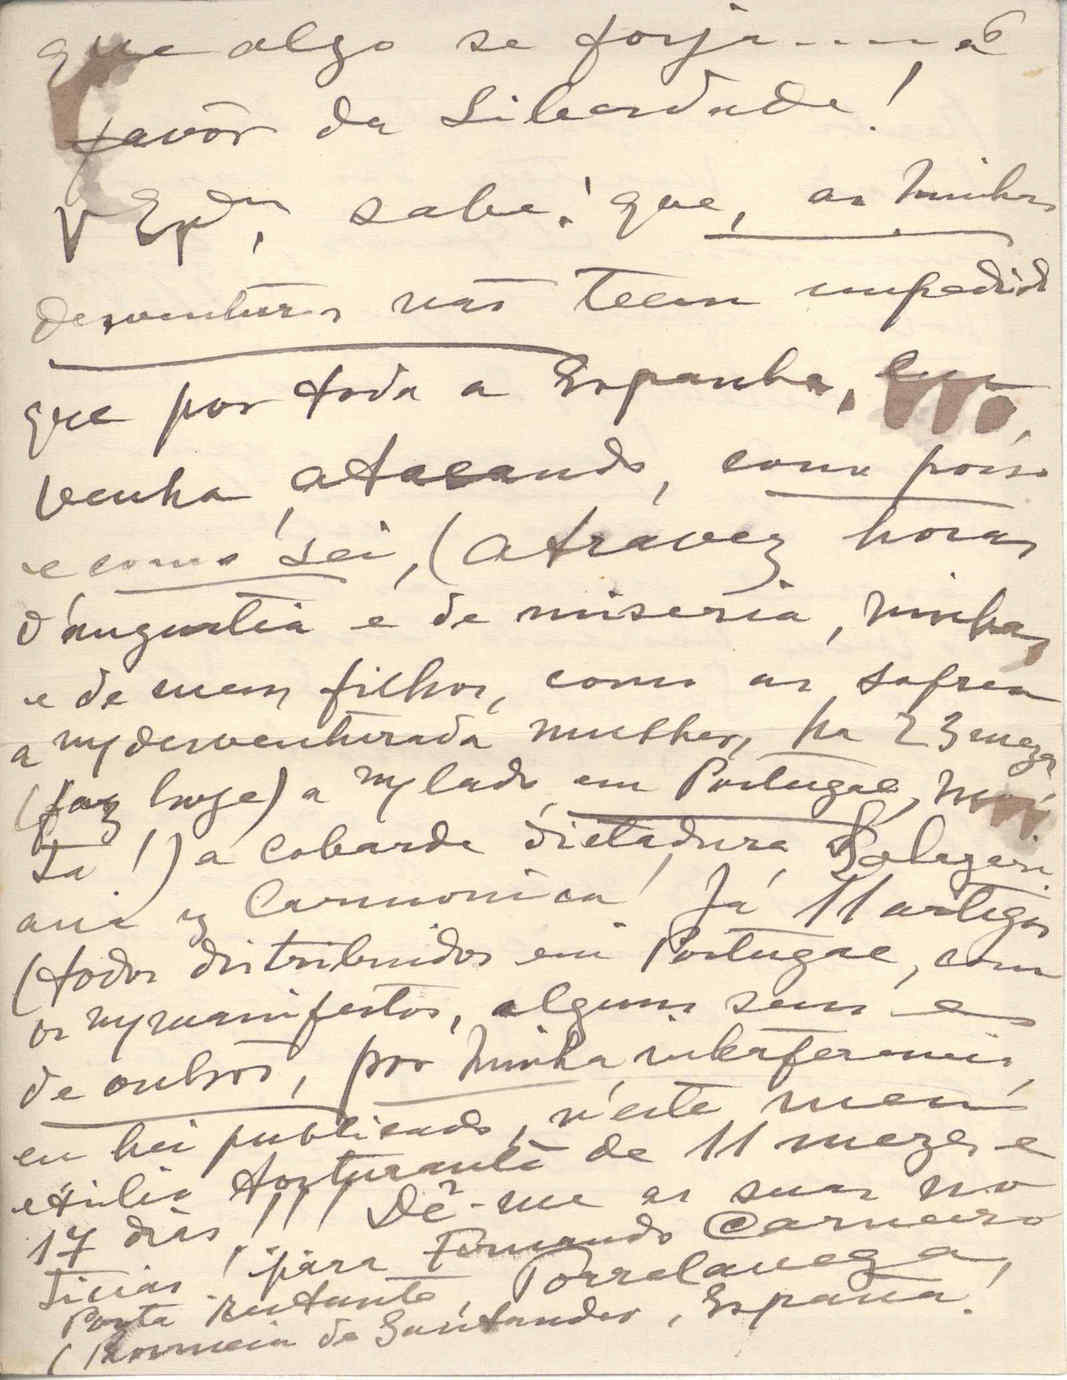 que algo se forja.... a 6
favôr da Liberdade!
V Exª, sabe! que, as minhas
desventuras não teem impedido
que por toda a Espanha, eu
venha atacando, como posso
e como sei, (atravez horas
d'angustia e de miseria, minhas
e de meus filhos, como as sofreu
a mª desventurada mulher, ha 23 mezes
(faz hoje) a mº lado em Portugal, mor
ta!) a cobarde dictadura Salazari
ana y Carmonica! Já 11 artigos
(todos distribuidos em Portugal, com
os mº manifestos, alguns seus e
de outros, por minha interferencia,
eu hei publicado, n'este meu
exilio torturante de 11 mezes e
17 dias!!! Dê-me as suas no
ticias! para Fernando Carneiro
Posta restante, Torrelavega,
(Provincia de Santander, España!